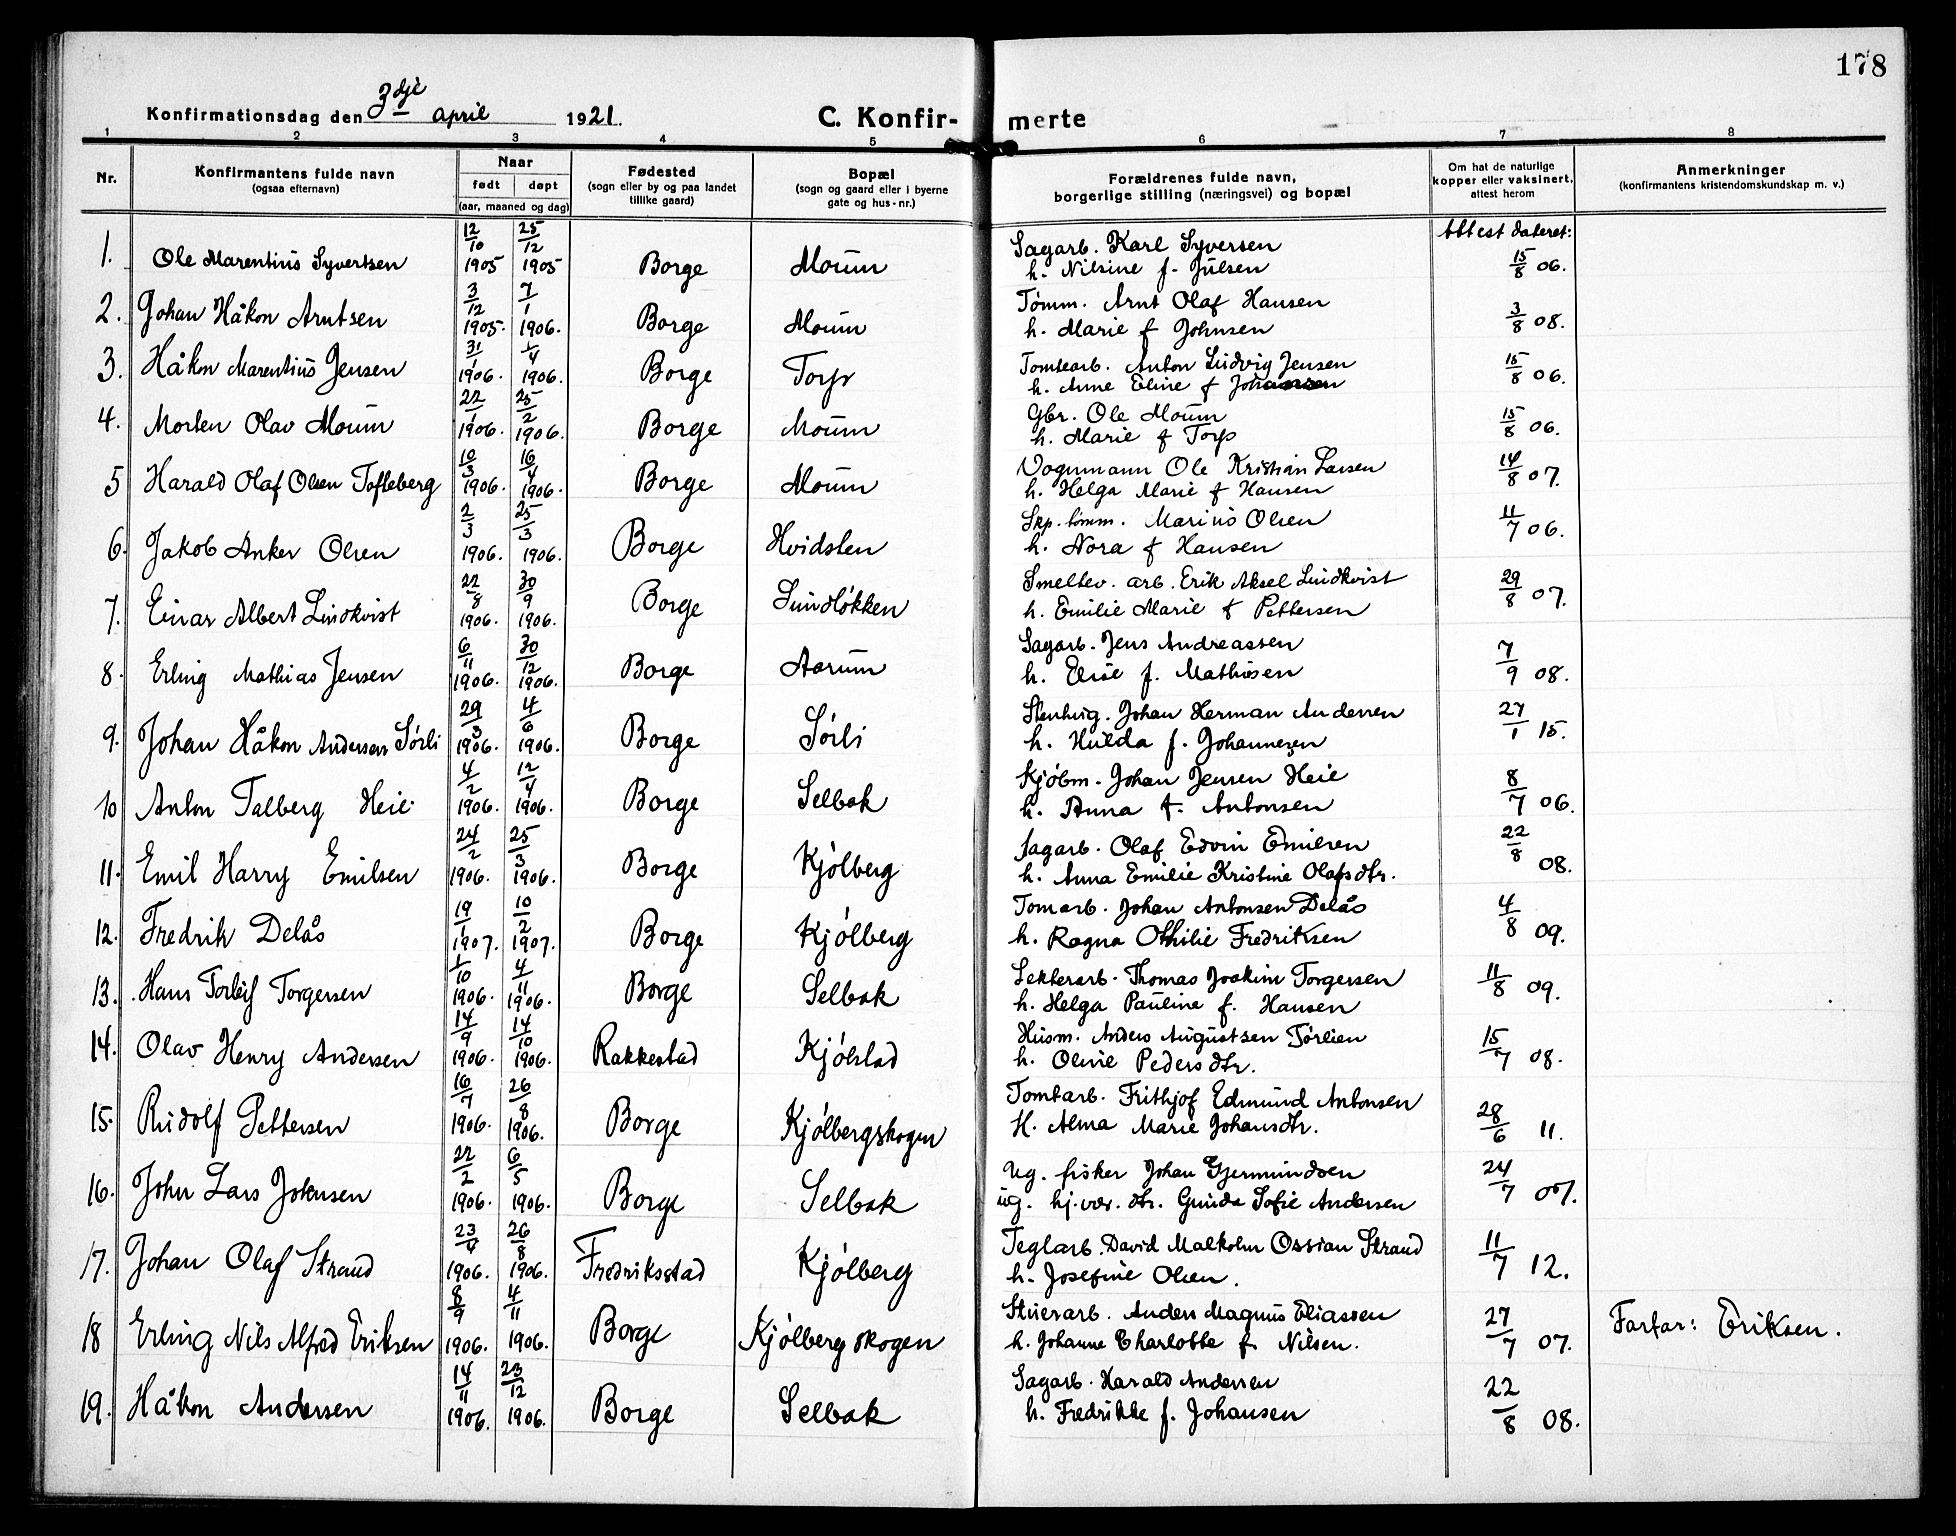 178
Konfirmationsdag den 3dje april 1921.
C. Konfirmerte
1 2 3 4 5 6 7 8
Nr. | Konfirmantens fulde navn (ogsaa efternavn) | Naar født | døpt (aar, maaned og dag) | Fødested (sogn eller by og paa landet tillike gaard) | Bopæl (sogn og gaard eller i byerne gate og hus-nr.) | Forældrenes fulde navn, borgerlige stilling (næringsvei) og bopæl | Om hat de naturlige kopper eller vaksinert, attest herom | Anmerkninger (konfirmantens kristendomskundskap m. v.)
Attest dateret:
1. Ole Marentius Syvertsen 12/10 1905 25/12 1905 Borge Moum Sagarb. Karl Syversen h. Nilsine f. Julsen 15/8 06.
2. Johan Håkon Arntsen 3/12 1905. 7/1 1906. Borge Moum Tømm. Arnt Olaf Hansen h. Marie f Johnsen 3/8 08.
3. Håkon Marentius Jensen 31/1 1906. 1/4 1906. Borge Torp Tomtearb. Anton Ludvig Jensen h. Anne Eline f Johansen 15/8 06.
4. Morten Olav Moum 22/1 1906. 25/2 1906. Borge Moum Gbr. Ole Moum h. Marie f Torp 15/8 06.
5 Harald Olaf Olsen Tofteberg 10/3 1906. 16/4 1906. Borge Moum Vognmann Ole Kristian Larsen h. Helga Marie f Hansen 14/8 07.
6. Jakob Anker Olsen 2/3 1906. 25/3 1906. Borge Hvidsten Skp. tømm. Marius Olsen h. Nora f Hansen 11/7 06.
7. Einar Albert Lindkvist 22/8 1906. 30/9 1906. Borge Sundløkken Smeltev. arb. Erik Aksel Lindkvist h. Emilie Marie f Pettersen 29/8 07.
8. Erling Mathias Jensen 6/11 1906. 30/12 1906. Borge Aarum Sagarb. Jens Andreassen h. Elise f. Mathisen 7/9 08.
9. Johan Håkon Andersen Sørli 29/3 1906. 4/6 1906. Borge Sørli Stenhug. Johan Herman Andersen h. Hulda f. Johannesen 27/1 15.
10 Anton Talberg Heie 4/2 1906. 12/4 1906. Borge Selbak Kjøbm. Johan Jensen Heie h. Anna f. Antonsen 8/7 06.
11. Emil Harry Emilsen 24/2 1906. 25/3 1906. Borge Kjølberg Sagarb. Olaf Edvin Emilsen h. Anna Emilie Kristine Olafsdtr. 22/8 08.
12. Fredrik Delås 19/1 1907. 10/2 1907. Borge Kjølberg Tomarb. Johan Antonsen Delås h. Ragna Othilie Fredriksen 4/8 09.
13. Hans Torleif Torgersen 1/10 1906. 4/11 1906. Borge Selbak Lekterarb. Thomas Joakim Torgersen h. Helga Pauline f. Hansen 11/8 09.
14. Olav Henry Andersen 14/9 1906. 14/10 1906. Rakkestad Kjølstad Husm. Anders Augustsen Tørlien h. Oline Pedersdtr. 15/7 08.
15. Rudolf Pettersen 16/7 1906. 26/8 1906. Borge Kjølbergskogen Tomtarb. Frithjof Edmund Antonsen H. Alma Marie Johansdtr. 28/6 11.
16. John Lars Johnsen 22/2 1906. 6/5 1906. Borge Selbak Ug. fisker Johan Gjermundsen ug. hj.vær. dtr. Gunda Sofie Andersen 24/7 07.
17. Johan Olaf Strand 23/4 1906. 26/8 1906. Fredriksstad Kjølberg Teglarb. David Malkolm Ossian Strand h. Josefine Olsen. 11/7 12.
18 Erling Nils Alfred Eriksen 8/9 1906. 4/11 1906. Borge Kjølbergskogen Stuerarb. Anders Magnus Eliassen h. Johanne Charlotte f. Nilsen. 27/7 07. Farfar: Eriksen.
19. Håkon Andersen 14/11 1906. 23/12 1906. Borge Selbak Sagarb. Harald Andersen h. Fredrikke f. Johansen 22/8 08.